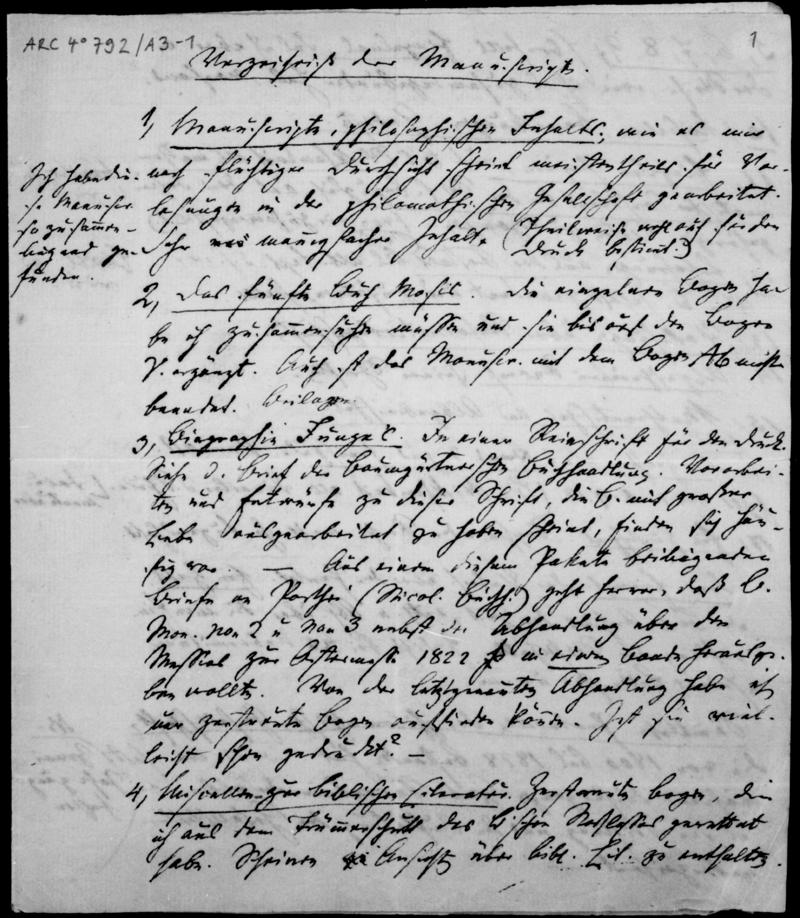 ARC 4° 792/A3-1
1
Verzeichniß der Manuscripte.
1, Manuscripte, philosophischen Inhalts, wie es mir
nach flüchtiger Durchsicht scheint meistentheils für Vor-
lesungen in der philomathischen Gesellschaft gearbeitet.
Sehr mannigfachen Inhalts (Theilweise wohl auch für den
Druck bestimt?)
Ich habe die-
se Manuscr.
so zusammen-
liegend ge-
funden.
2, Das fünfte Buch Mosis. Die einzelnen Bogen ha-
be ich zusammensuchen müssen und sie bis auf den Bogen
V. ergänzt. Auch ist das Manuscr. mit dem Bogen Ab nicht
beendet. Beilagen.
3, Biographie Junge's. In einer Reinschrift für den Druck.
Siehe d. Brief der Baumgärtnerschen Buchhandlung. Vorarbei-
ten und Entwürfe zu dieser Schrift, die B. mit großer
Liebe ausgearbeitet zu haben scheint, finden sich häu-
fig vor. — Aus einem diesem Pakete beiliegenden
Briefe an Parthei (Nicol. Buchh.) geht hervor, daß B.
Man. von 2 u von 3 nebst der Abhandlung über den
Messias zur Ostermesse 1822 in einem Bande herausge-
ben wollte. Von der letztgenannten Abhandlung habe ich
nur zerstreute Bogen auffinden können. Ist sie viel-
leicht schon gedruckt? —
4, Miscellen zur biblischen Literatur. Zerstreute Bogen, die
ich aus dem Trümmerschutt des B'schen Nachlasses gerettet
habe. Scheinen Ansichten über bibl. Lit. zu enthalten.